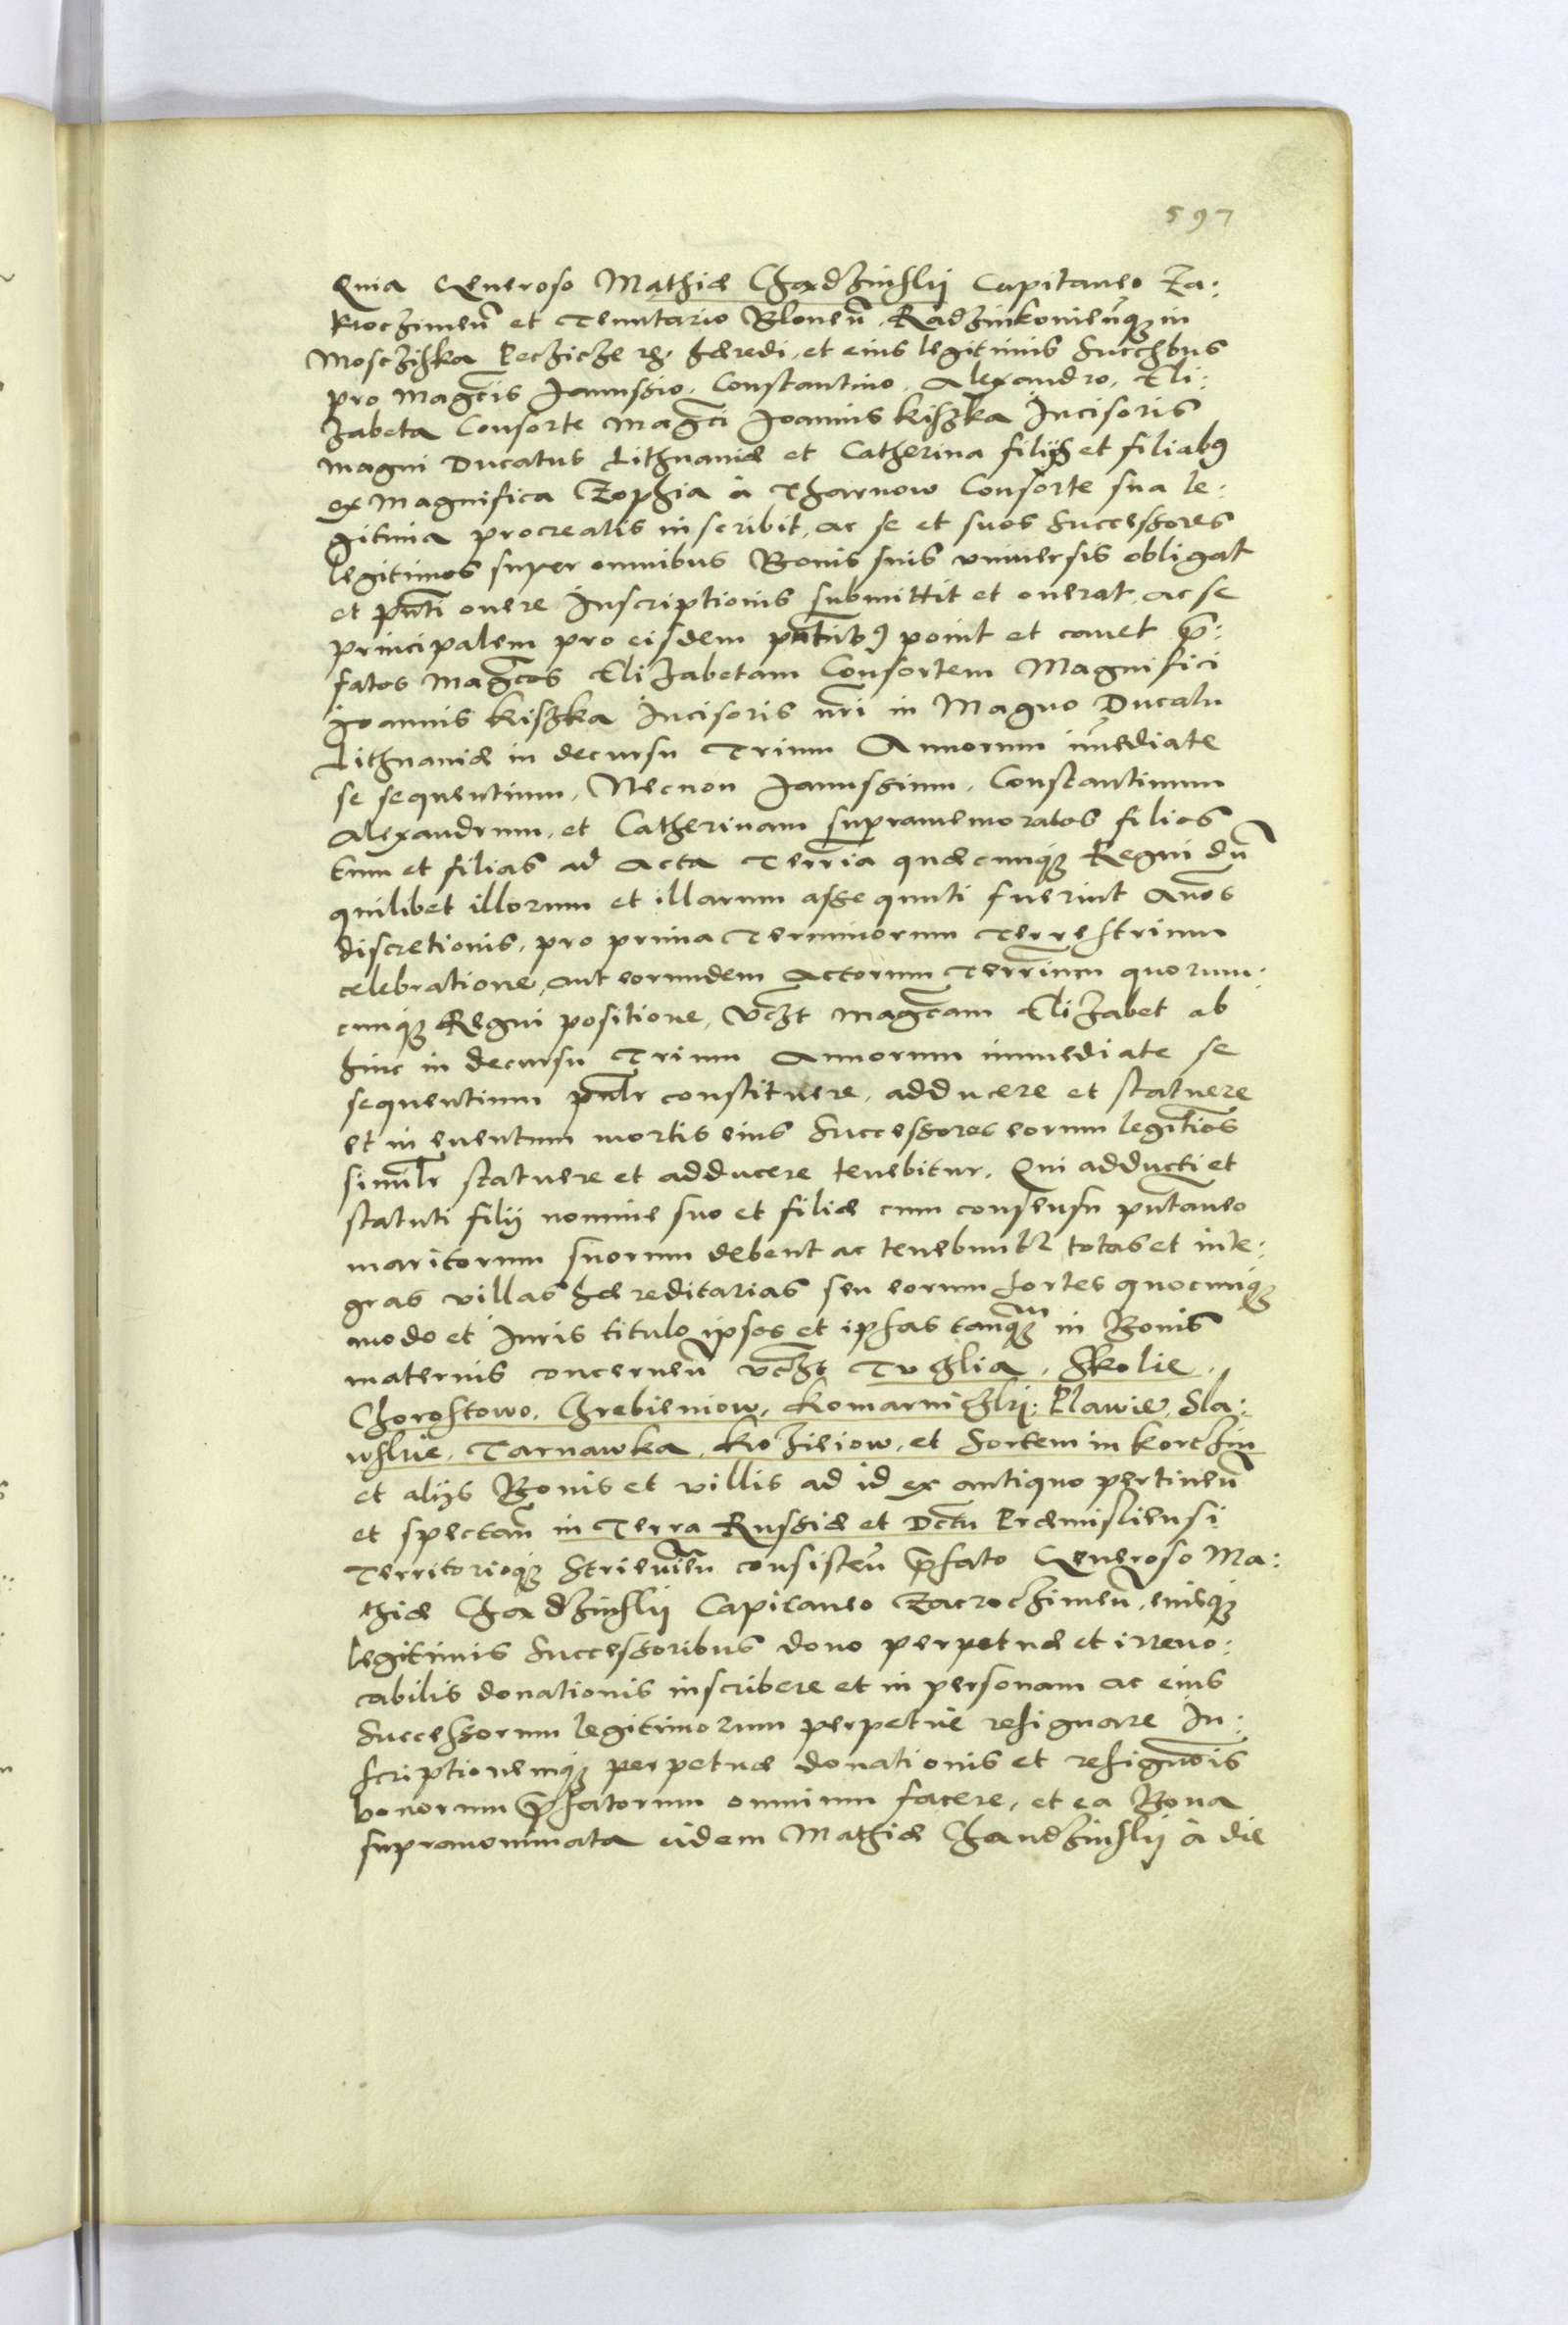 597
Quia Generoso Mathiæ Chądzinskij Capitaneo Za:
kroczimeñ et Tenutario Bloneñ, Radzinkonieñqꝫ in
Mosczißka Peczicze ꝛc. hæredi, et eius legitimis Succſbus
pro Magcis Janussio, Constantino, Alexandro, Eli:
zabeta Consorte Magci Joannis Kißka Incisoris
Magni Ducatus Lithuaniæ et Catherina filijs et filiabꝰ
ex Magnifica Zophia à Tharnow Consorte sua le:
gitima procreatis inscribit, ac se et suos Successores
legitimos super omnibus Bonis suis vniuersis obligat
et pñti onere Inscriptionis submittit et onerat, ac se
principalem pro eisdem pñtibꝰ ponit et cauet p̄:
fatos Magcos Elizabetam Consortem Magnifici
Joannis Kiszka Incisoris nr̄i in Magno Ducatu
Lithuaniæ in decursu Trium Annorum im̄ediate
se sequentium, Necnon Janussium, Constantinum
Alexandrum, et Catherinam supramemoratos filios
tum et filias ad Acta Terr̄ia quæcunqꝫ Regni dū
quilibet illorum et illarum assequuti fuerint An̄os
discretionis, pro prima Terminorum Terrestrium
celebratione, aut eorundem Actorum Terr̄ium quorum:
cunqꝫ Regni positione, vcꝫt Magcam Elizabet ab
hinc in decursu Trium Annorum immediate se
sequentium pñlr constituere, adducere et statuere
et in euentum mortis eius Successores eorum legittios
simulr statuere et adducere tenebitur. Qui adducti et
statuti filij nomine suo et filiæ cum consensu pñtaneo
maritorum suorum debent ac tenebuntꝛ totas et inte:
gras villas hæreditarias seu eorum sortes quocunqꝫ
modo et Juris titulo ipsos et ipsas tanqꝫm in Bonis
maternis concerneñ vcꝫt Tuchlia, Skolie,
Chorostowo, Hrebieniow, Komarniczki, Plawie, Sla:
wskie, Tarnawka, Koziliow, et Sortem in Korczin
et alijs Bonis et villis ad id ex antiquo pertineñ
et spectañ in Terra Russiæ et Dctu Præmisliensi
Territorioqꝫ Strieuień consisteñ p̄fato Generoso Ma:
thiæ Chądzinskij Capitaneo Zacroczimeñ, eiusqꝫ
legitimis Successoribus dono perpetuæ et irreuo:
cabilis donationis inscribere et in personam ac eius
Successorum legitimorum perpetue resignare In:
scriptionemqꝫ perpetuæ donationis et resignōis
bonorum p̄fatorum omnium facere, et ea Bona
supranominata eidem Mathiæ Chandzinskij à die